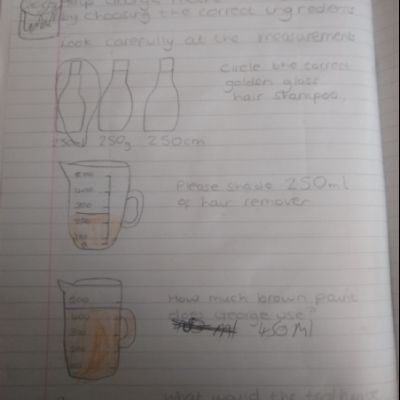 by choosing the correct ingredients
Look carefully at the measurement
Circle the correct
golden gloss
hair shampoo.
250ml 250g 250cm
Please shade 250ml
of hair remover
500
400
300
200
100
How much brown paint
does George use?
450ml
500
400
300
200
what would the